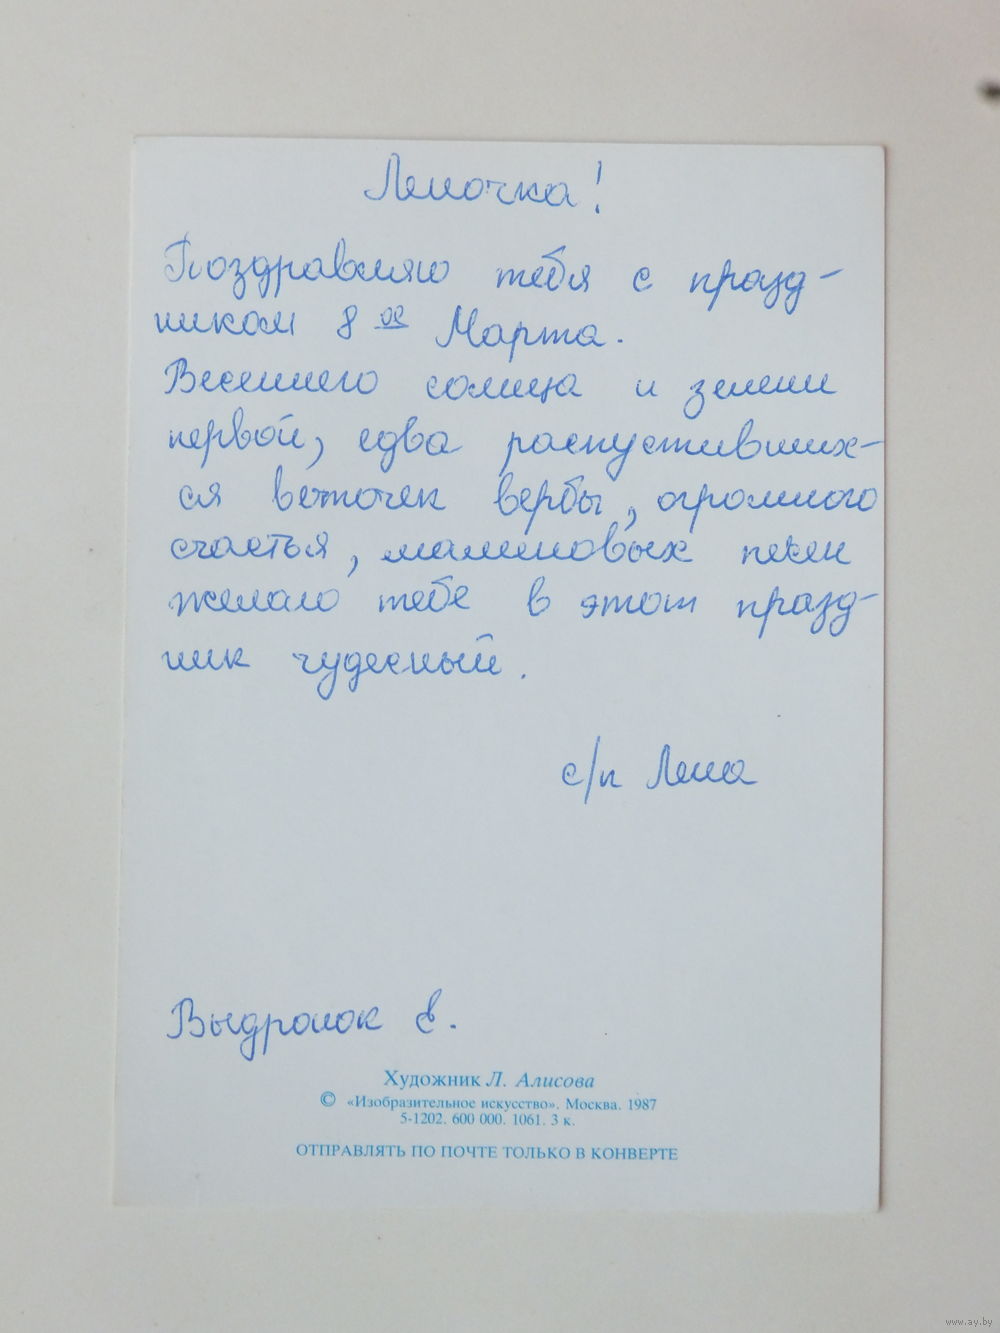 Леночка!
Поздравляю тебя с празд-
ником 8 ое Марта.
Весеннего солнца и зелени
первой, едва распустивших-
ся веточек вербы, огромного
счастья, малиновых песен
желаю тебе в этот празд-
ник чудесный.
с/п Лена
Е.
Художник Л. Алисова
© «Изобразительное искусство». Москва. 1987
5-1202. 600 000. 1061. 3 к.
ОТПРАВЛЯТЬ ПО ПОЧТЕ ТОЛЬКО В КОНВЕРТЕ
www.ay.by